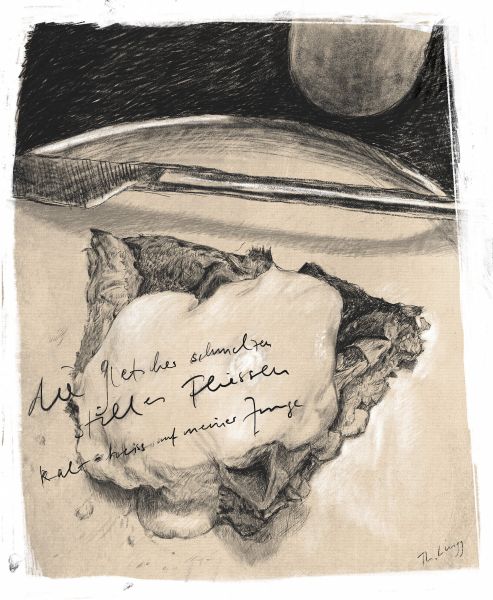 die gletscher schmelzen
stilles Fliessen
kalt-heiss auf meiner Zunge
Th. Lingg